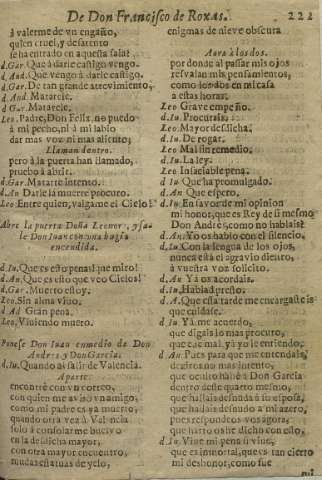 De Don Francisco de Roxas. 222
à valerme de vn engaño,
quien cruel, y desatento
se ha entrado en aquesta sala?
d.Gar. Que à darle castigo vengo.
d.And. Que vengo à darle castigo.
d.Gar. De tan grande atrevimiento,
d.And. Matarèle.
d.Gar. Matarèle.
Leo. Padre, Don Felix, no puedo
à mi pecho, ni à mi labio
dar mas voz ni mas aliento;
Llaman dentro.
pero à la puerta han llamado,
pruebo à abrir.
d.Gar. Matarte intento.
d.An. Darle la muerte procuro.
Leo. Entre quien, valgame el Cielo!
Abre la puerta Doña Leonor, y sale
Don Juan con vna bugia
encendida.
d.Iu. Que es esto penas! que miro!
d.An. Que es esto que veo Cielos!
d.Gar. Muerto estoy.
Leo. Sin alma vivo.
d.Ad Gran pena.
Leo. Viviendo muero.
Ponese Don Iuan en medio de Don
Andres y Don Garcia.
d.Iu. Quando al salir de Valencia.
Aparte.
encontrè con vn correo,
con quien me avisò vn amigo,
como mi padre es ya muerto,
quando otra vez à Valencia
solo à consolarme buelvo
en la desdicha mayor,
con otra mayor encuentro,
mudas estatuas de yelo,
enigmas de nieve obscura
Aora à los dos.
por donde al passar mis ojos
resvalan mis pensamientos,
como los dos en mi casa
à estas horas?
Leo Grave empeño.
d.Iu. Procurais.
Leo. Mayor desdicha.
d.Iu. De rogar.
Leo Mal sin remedio.
d.Iu. La ley.
Leo Insaciable pena.
d.Iu. Que ha promulgado.
d.An Que espero.
d.Iu. En favor de mi opinion
mi honor, que es Rey de si mesmo
Don Andrès, como no hablais?
d.An. Yo os hablo con el silencio,
d.Iu. Con la lengua de los ojos,
nunca està el agravio dientro,
à vuestra voz solicito.
d.An Yà os acordais.
d.Iu. Hablad presto.
d.A. Que esta tarde me encargasteis
que cuidasse.
d.Iu Yà me acuerdo,
que digais lo mas procuro,
que esse mal, yà yo le entiendo,
d.An. Pues para que me entendais,
deziros no mas intento,
que ocultò hallè à Don Garcia
dentro deste quarto mesmo,
que hallais desnuda à su esposa,
que hallais desnudo à mi azero,
pues respondeos vos agora,
que harto os he dicho con esto,
d.Iu. Vive mi pena si vive,
que es inmortal, que es tan cierto
mi deshonor, como fue